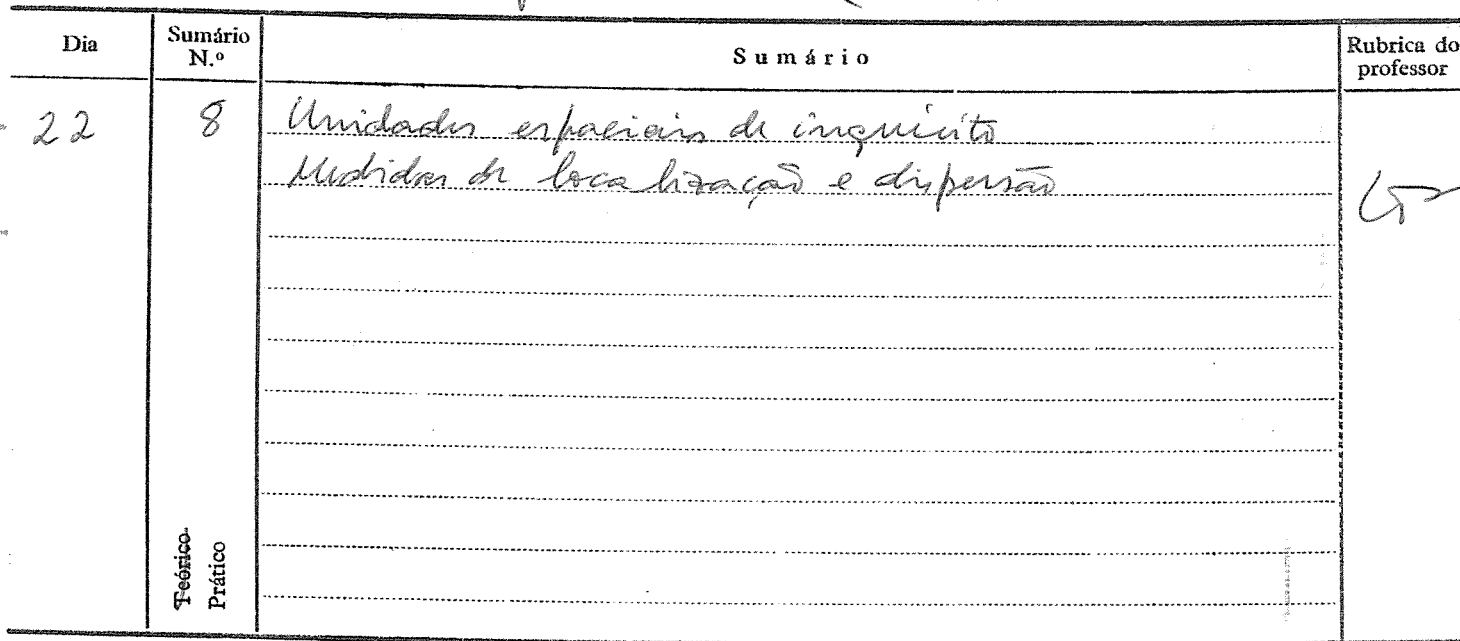 Dia Sumário N.º Sumário Rubrica do professor
22 8 Unidades espaciais de inquérito
Medidas de localização e dispersão
Teórico
Prático